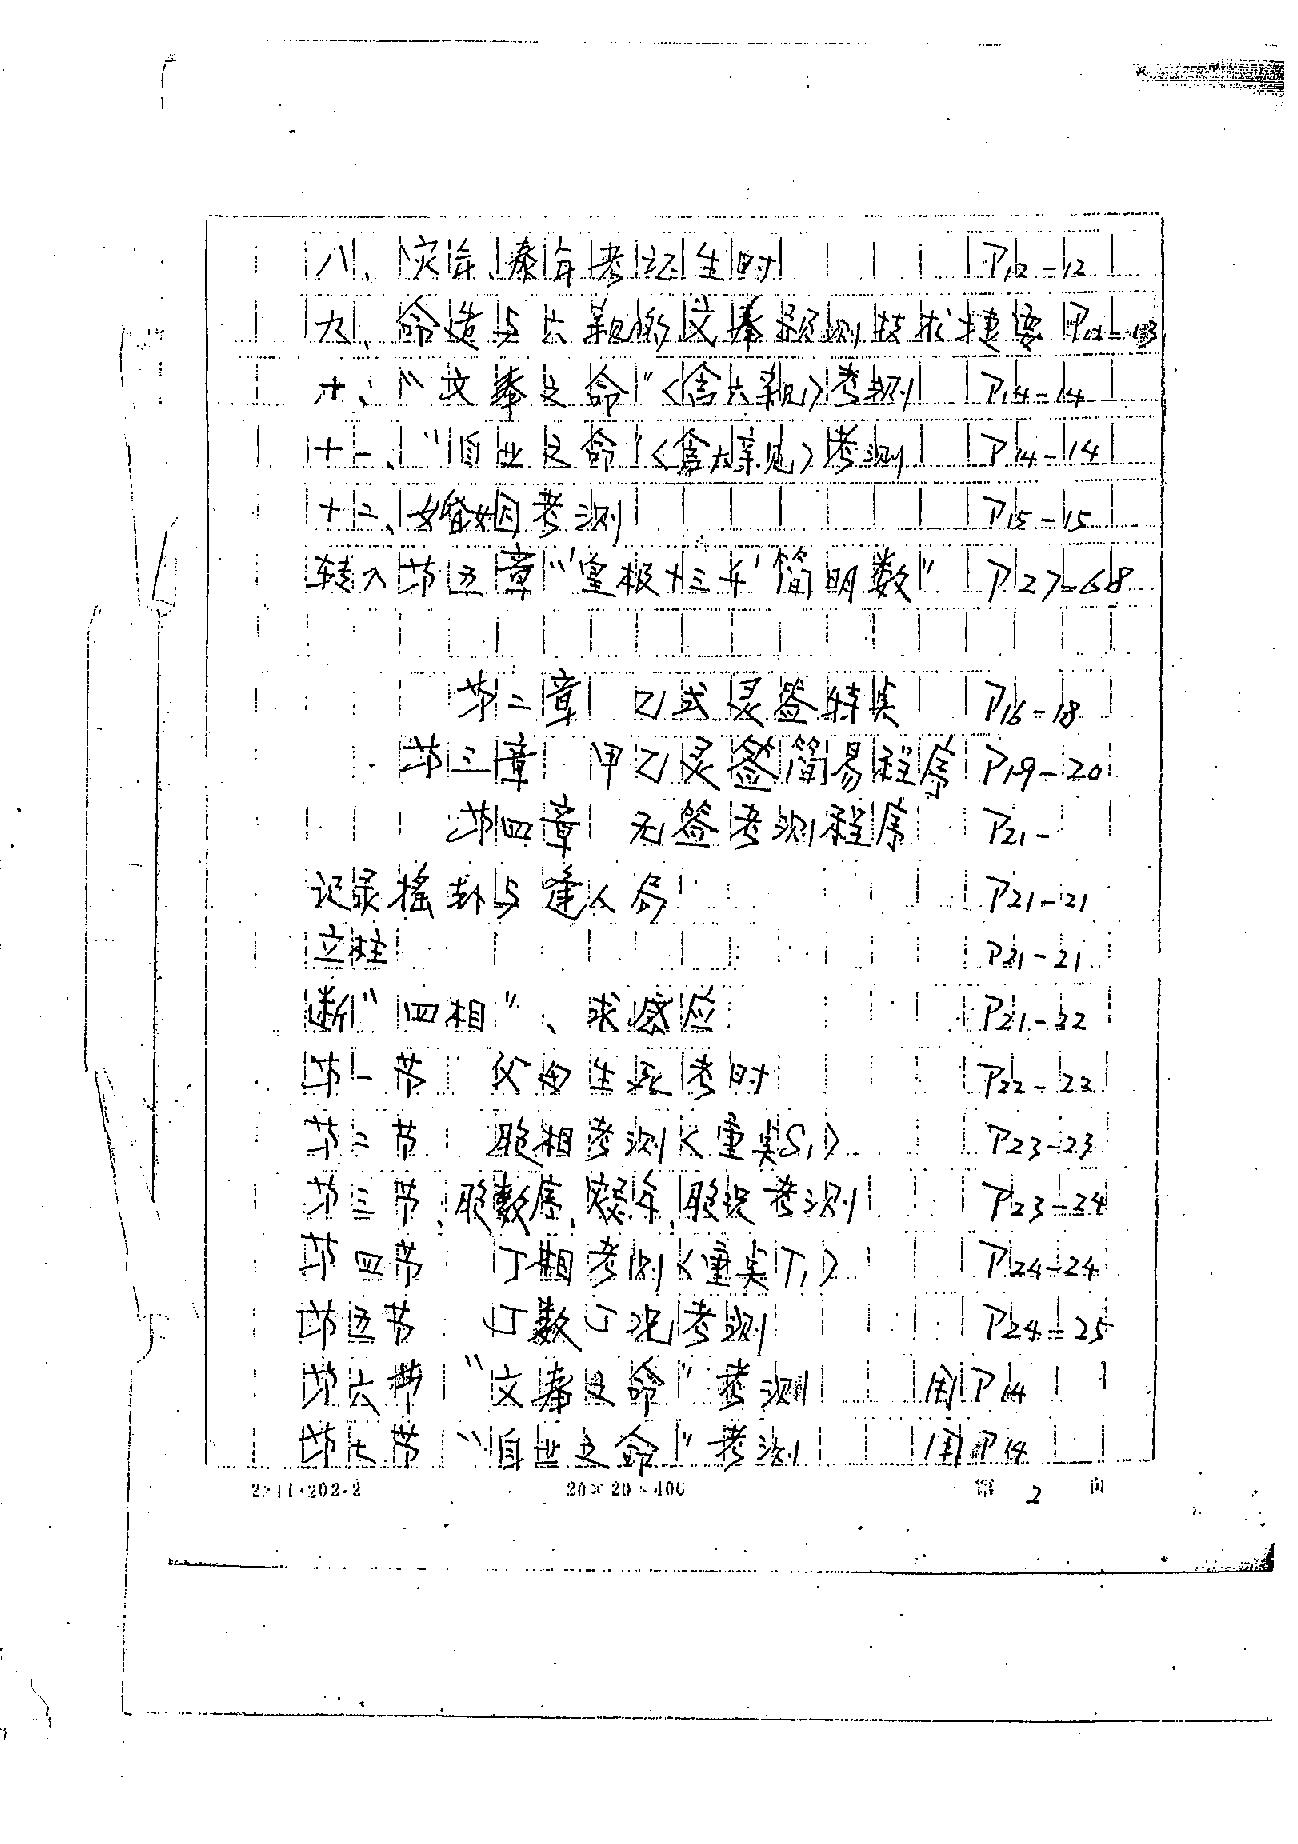 八、灾年、泰年考证生时 P12-12
九、命造与六亲的文奉预测技术捷要 P12-13
十、“文奉之命”〈含六亲〉考测 P14-14
十一、“自业之命”〈含六亲见〉考测 P14-14
十二、婚姻考测 P15-15
转入第五章“‘皇极十三千’简明数” P27-68
第二章 乙式灵签特类 P16-18
第三章 甲乙灵签简易程序 P19-20
第四章 无签考测程序 P21-
记录摇卦与逢人局 P21-21
立柱 P21-21
断“四相”、求感应 P21-22
第一节 父母生死考时 P22-22
第二节 胞相考测〈重类S1〉 P23-23
第三节、胞数序、年、胞况考测 P23-24
第四节 丁期考测〈重类T1〉 P24-24
第五节 丁数丁况考测 P24-25
第六节 “文奉之命”考测 用P14
第七节 “自业之命”考测 用P14
20×20=400 第 2 页